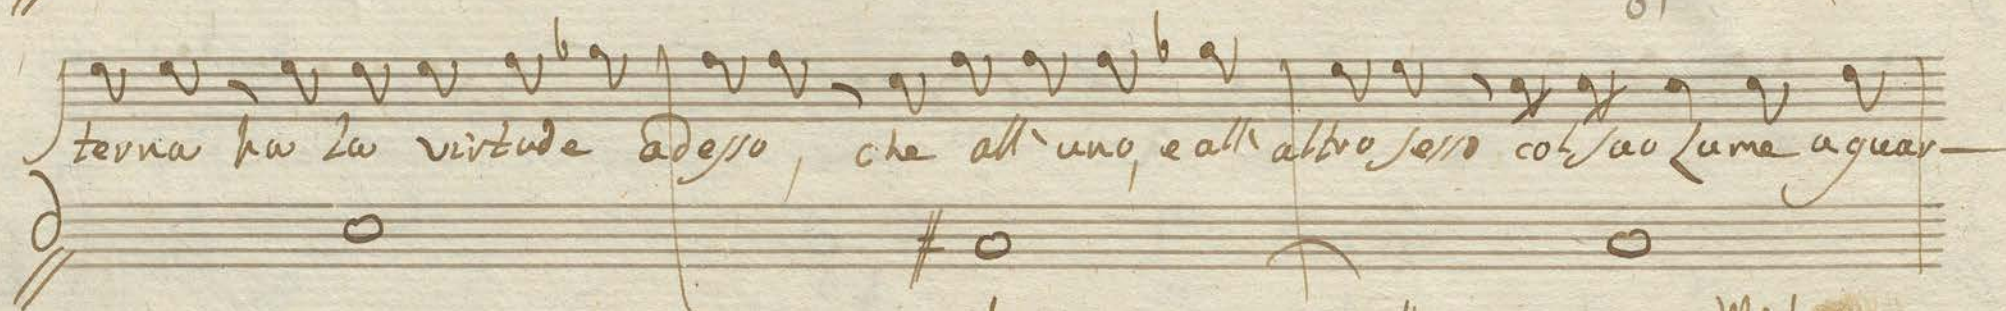 terna ha la virtude adesso, che all' uno, e all' altro sesso col suo lume a guar-